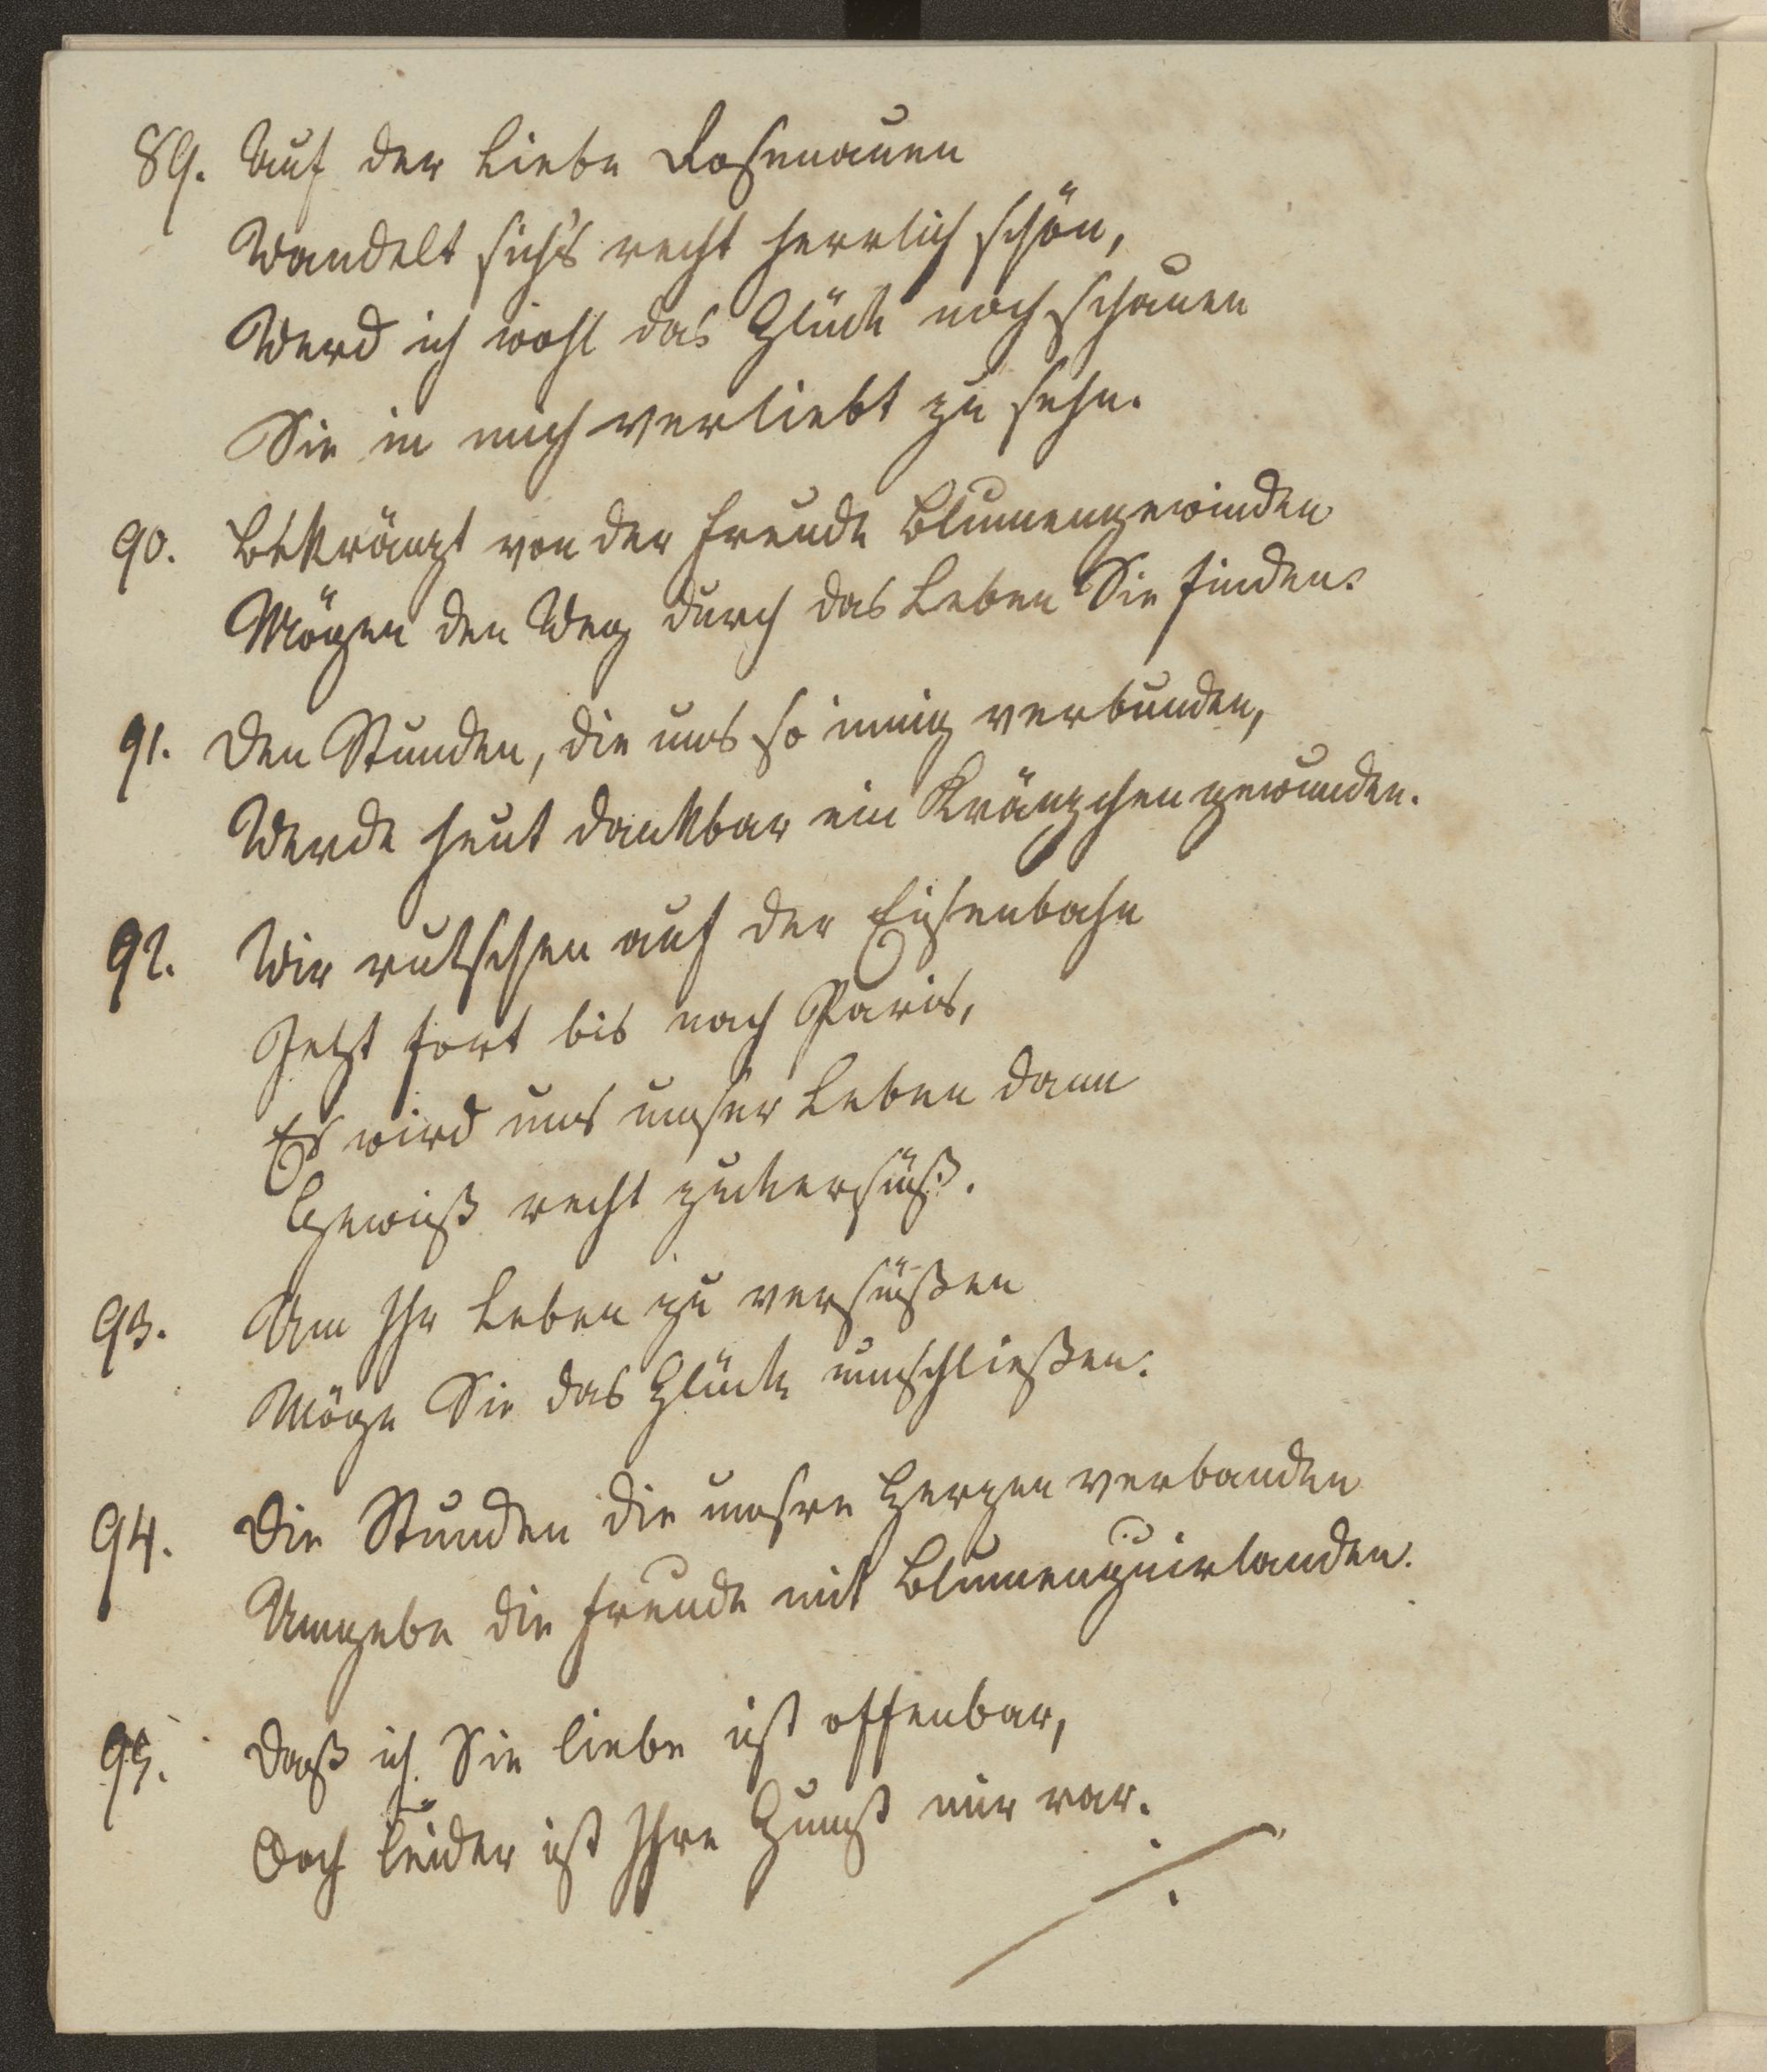 89. Auf der Liebe Rosenauen
Wandelt sich's recht herrlich schön,
Werd ich wohl das Glück noch schauen
Sie in mich verliebt zu sehn.
90. Bekränzt von der Freude Blumengewinden
Mögen den Weg durch das Leben Sie finden.
91. Den Stunden, die uns so innig verbunden,
Werde heut dankbar ein Kränzchen gewunden.
92. Wir rutschen auf der Eisenbahn
Jetzt fort bis nach Paris,
Es wird uns unser Leben dann
Gewiß recht zuckersüß.
93. Um Ihr Leben zu versüßen
Möge Sie das Glück umschließen.
94. Die Stunden die unsre Herzen verbanden
Umgebe die Freude mit Blumenguirlanden.
95. Daß ich Sie liebe ist offenbar,
Doch leider ist Ihre Gunst mir rar.